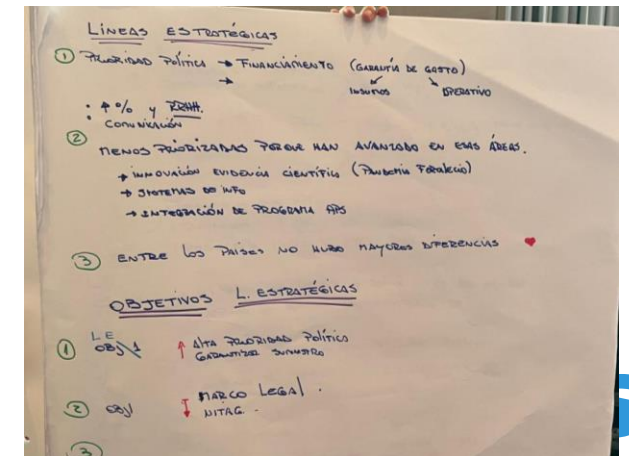 LÍNEAS ESTRATÉGICAS
① PRIORIDAD Política → FINANCIAMIENTO (GARANTÍA DE GASTO)
→ INSUMOS OPERATIVO
: ↑ % y RRHH.
COMUNICACIÓN
② MENOS PRIORIZADAS PORQUE HAN AVANZADO EN ESAS ÁREAS.
→ INNOVACIÓN EVIDENCIA CIENTÍFICA (Pandemia Fortaleció)
→ SISTEMAS DE INFO
→ INTEGRACIÓN DE PROGRAMA APS
③ ENTRE LOS PAÍSES NO HUBO MAYORES DIFERENCIAS
OBJETIVOS L. ESTRATÉGICAS
L E
① OBJ 1 ↑ ALTA PRIORIDAD Política
GARANTIZAR SUMINISTRO
MARCO LEGAL.
② OBJ NITAG.
③